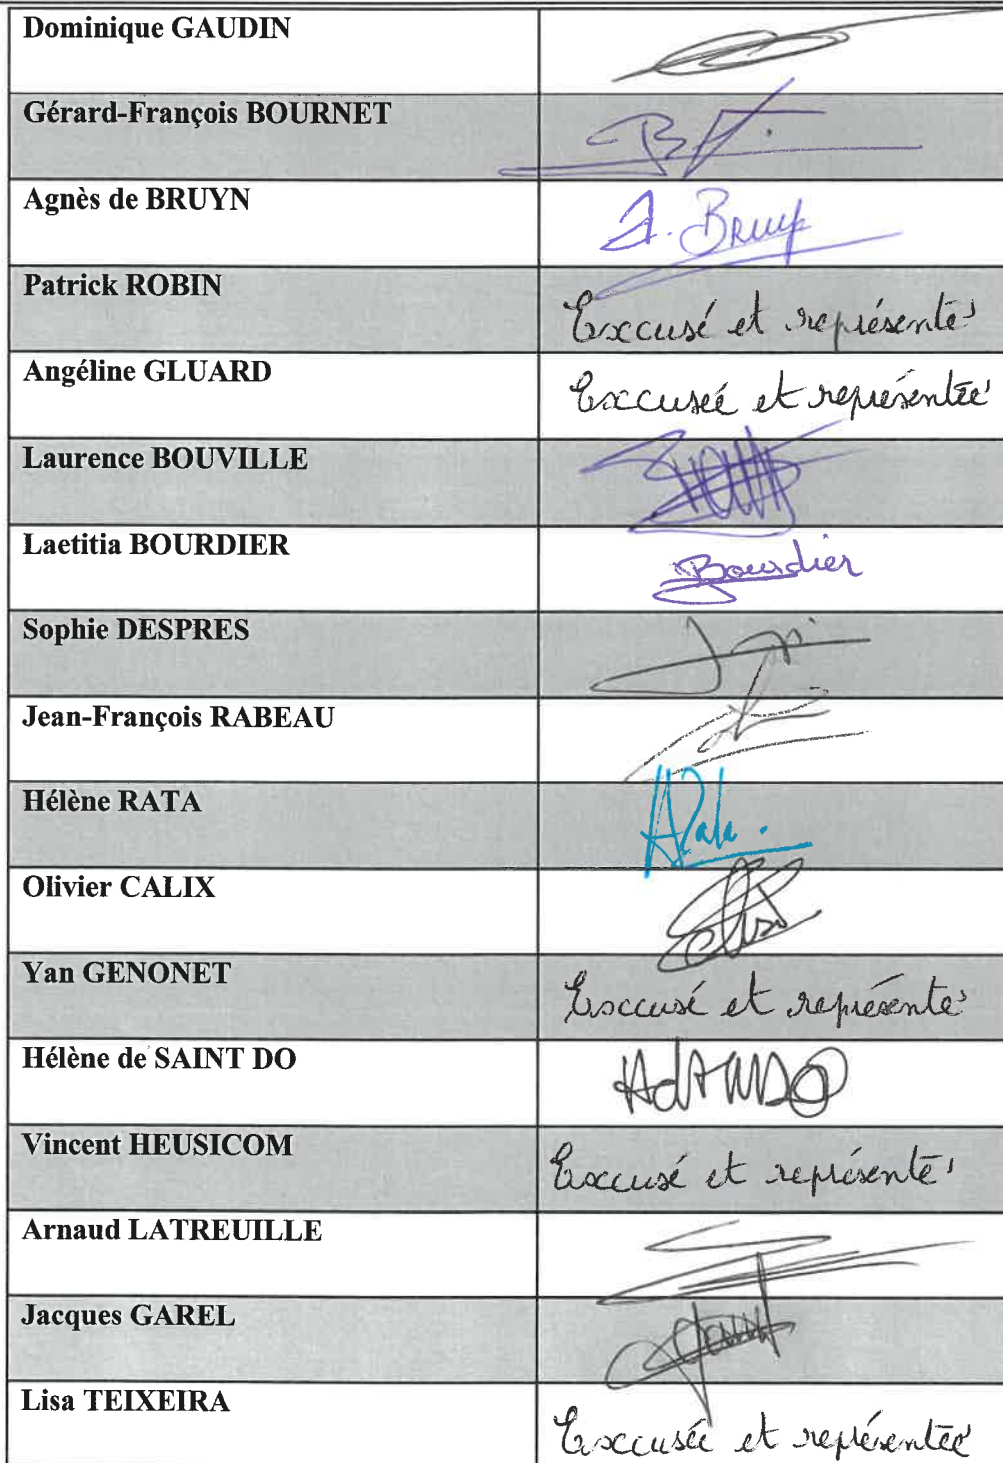 Dominique GAUDIN
Gérard-François BOURNET
Agnès de BRUYN
A. Bruyn
Patrick ROBIN
Excusé et représenté
Angéline GLUARD
Excusée et représentée
Laurence BOUVILLE
Laetitia BOURDIER
Bourdier
Sophie DESPRES
Jean-François RABEAU
Hélène RATA
HRata.
Olivier CALIX
Yan GENONET
Excusé et représenté
Hélène de SAINT DO
Vincent HEUSICOM
Excusé et représenté
Arnaud LATREUILLE
Jacques GAREL
Lisa TEIXEIRA
Excusée et représentée